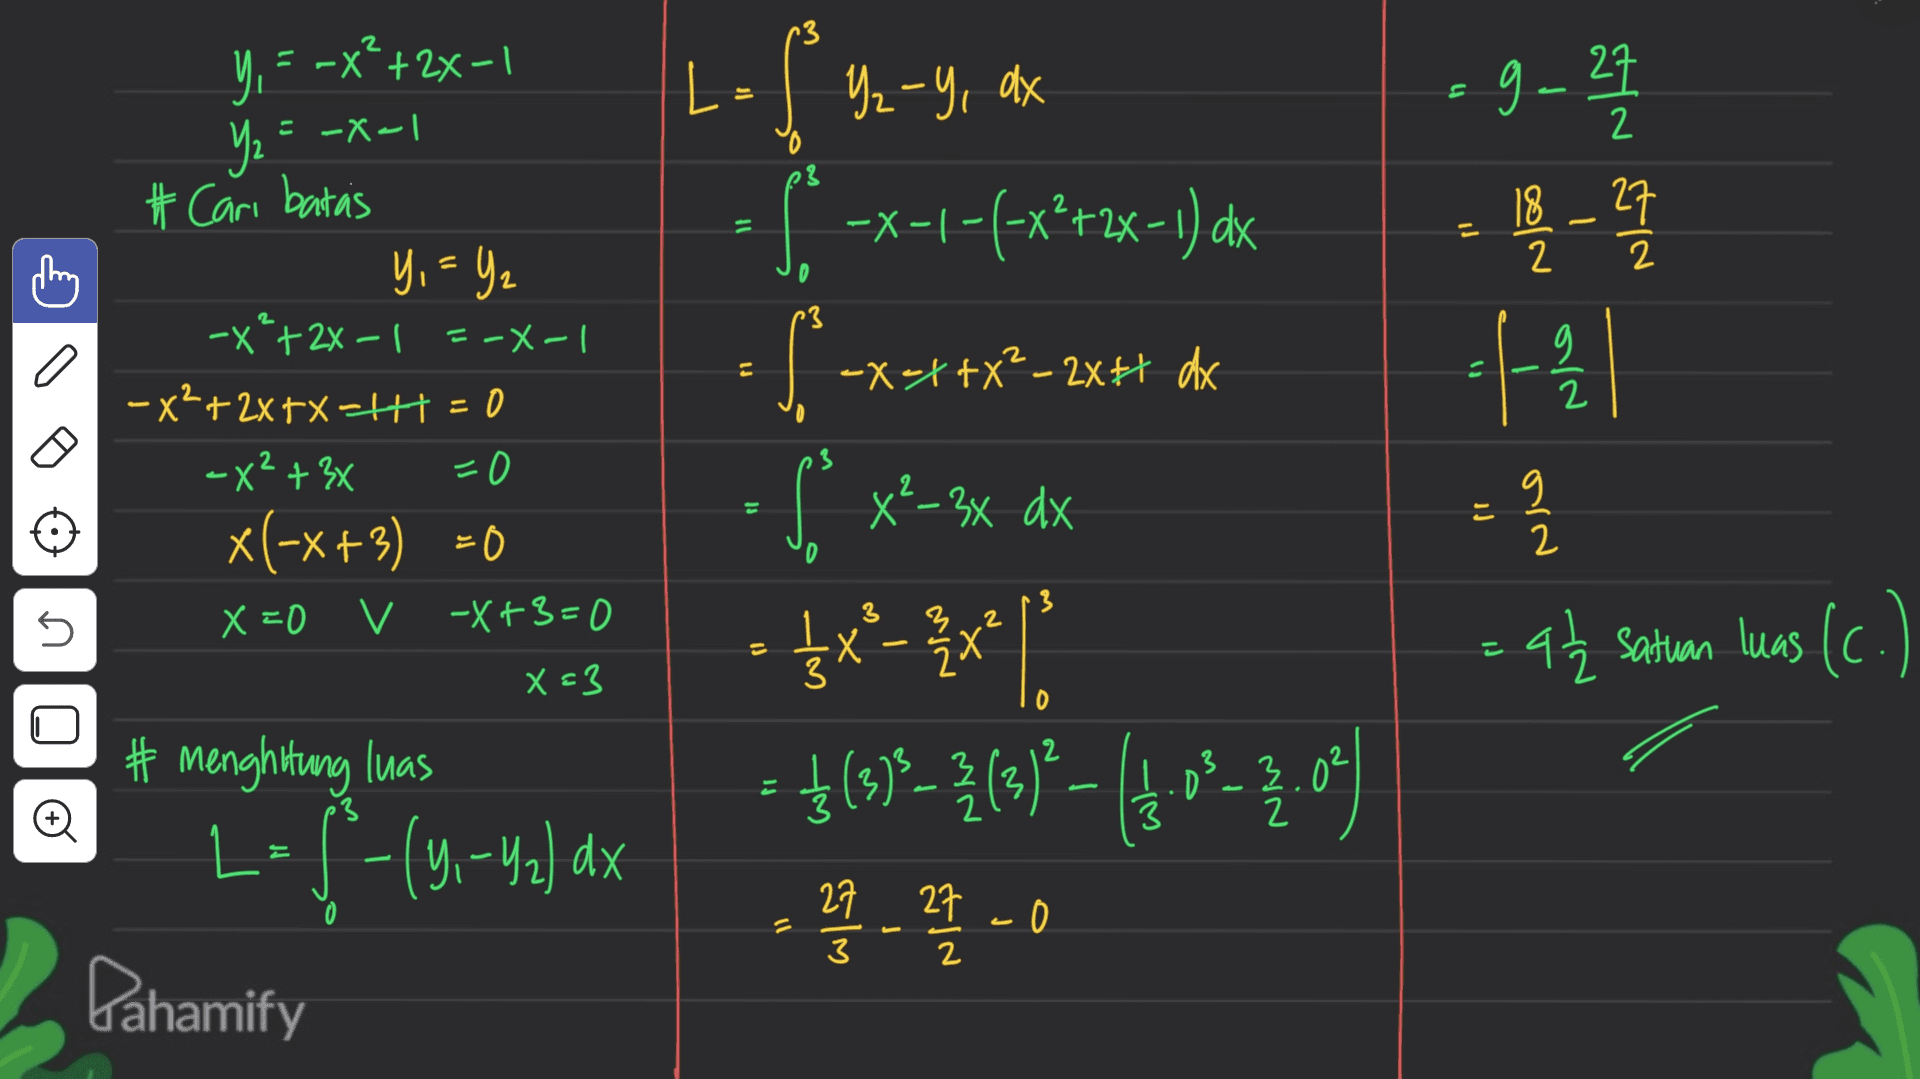 y₁ = -x²+2x-1
y₂ = -x-1
# Cari batas
y₁ = y₂
-x²+2x-1 = -x-1
-x²+2x+x-1+1 = 0
-x²+3x = 0
x(-x+3) = 0
x=0 V -x+3=0
x=3
# menghitung luas
L = ∫₀³ -(y₁-y₂) dx
Pahamify
L = ∫₀³ y₂-y₁ dx
= ∫₀³ -x-1-(-x²+2x-1) dx
= ∫₀³ -x-1+x²-2x+1 dx
= ∫₀³ x²-3x dx
= 1/3 x³ - 3/2 x² |₀³
= 1/3 (3)³ - 3/2 (3)² - (1/3 . 0³ - 3/2 . 0²)
= 27/3 - 27/2 - 0
= 9 - 27/2
= 18/2 - 27/2
= |-9/2|
= 9/2
= 4 1/2 satuan luas (C.)